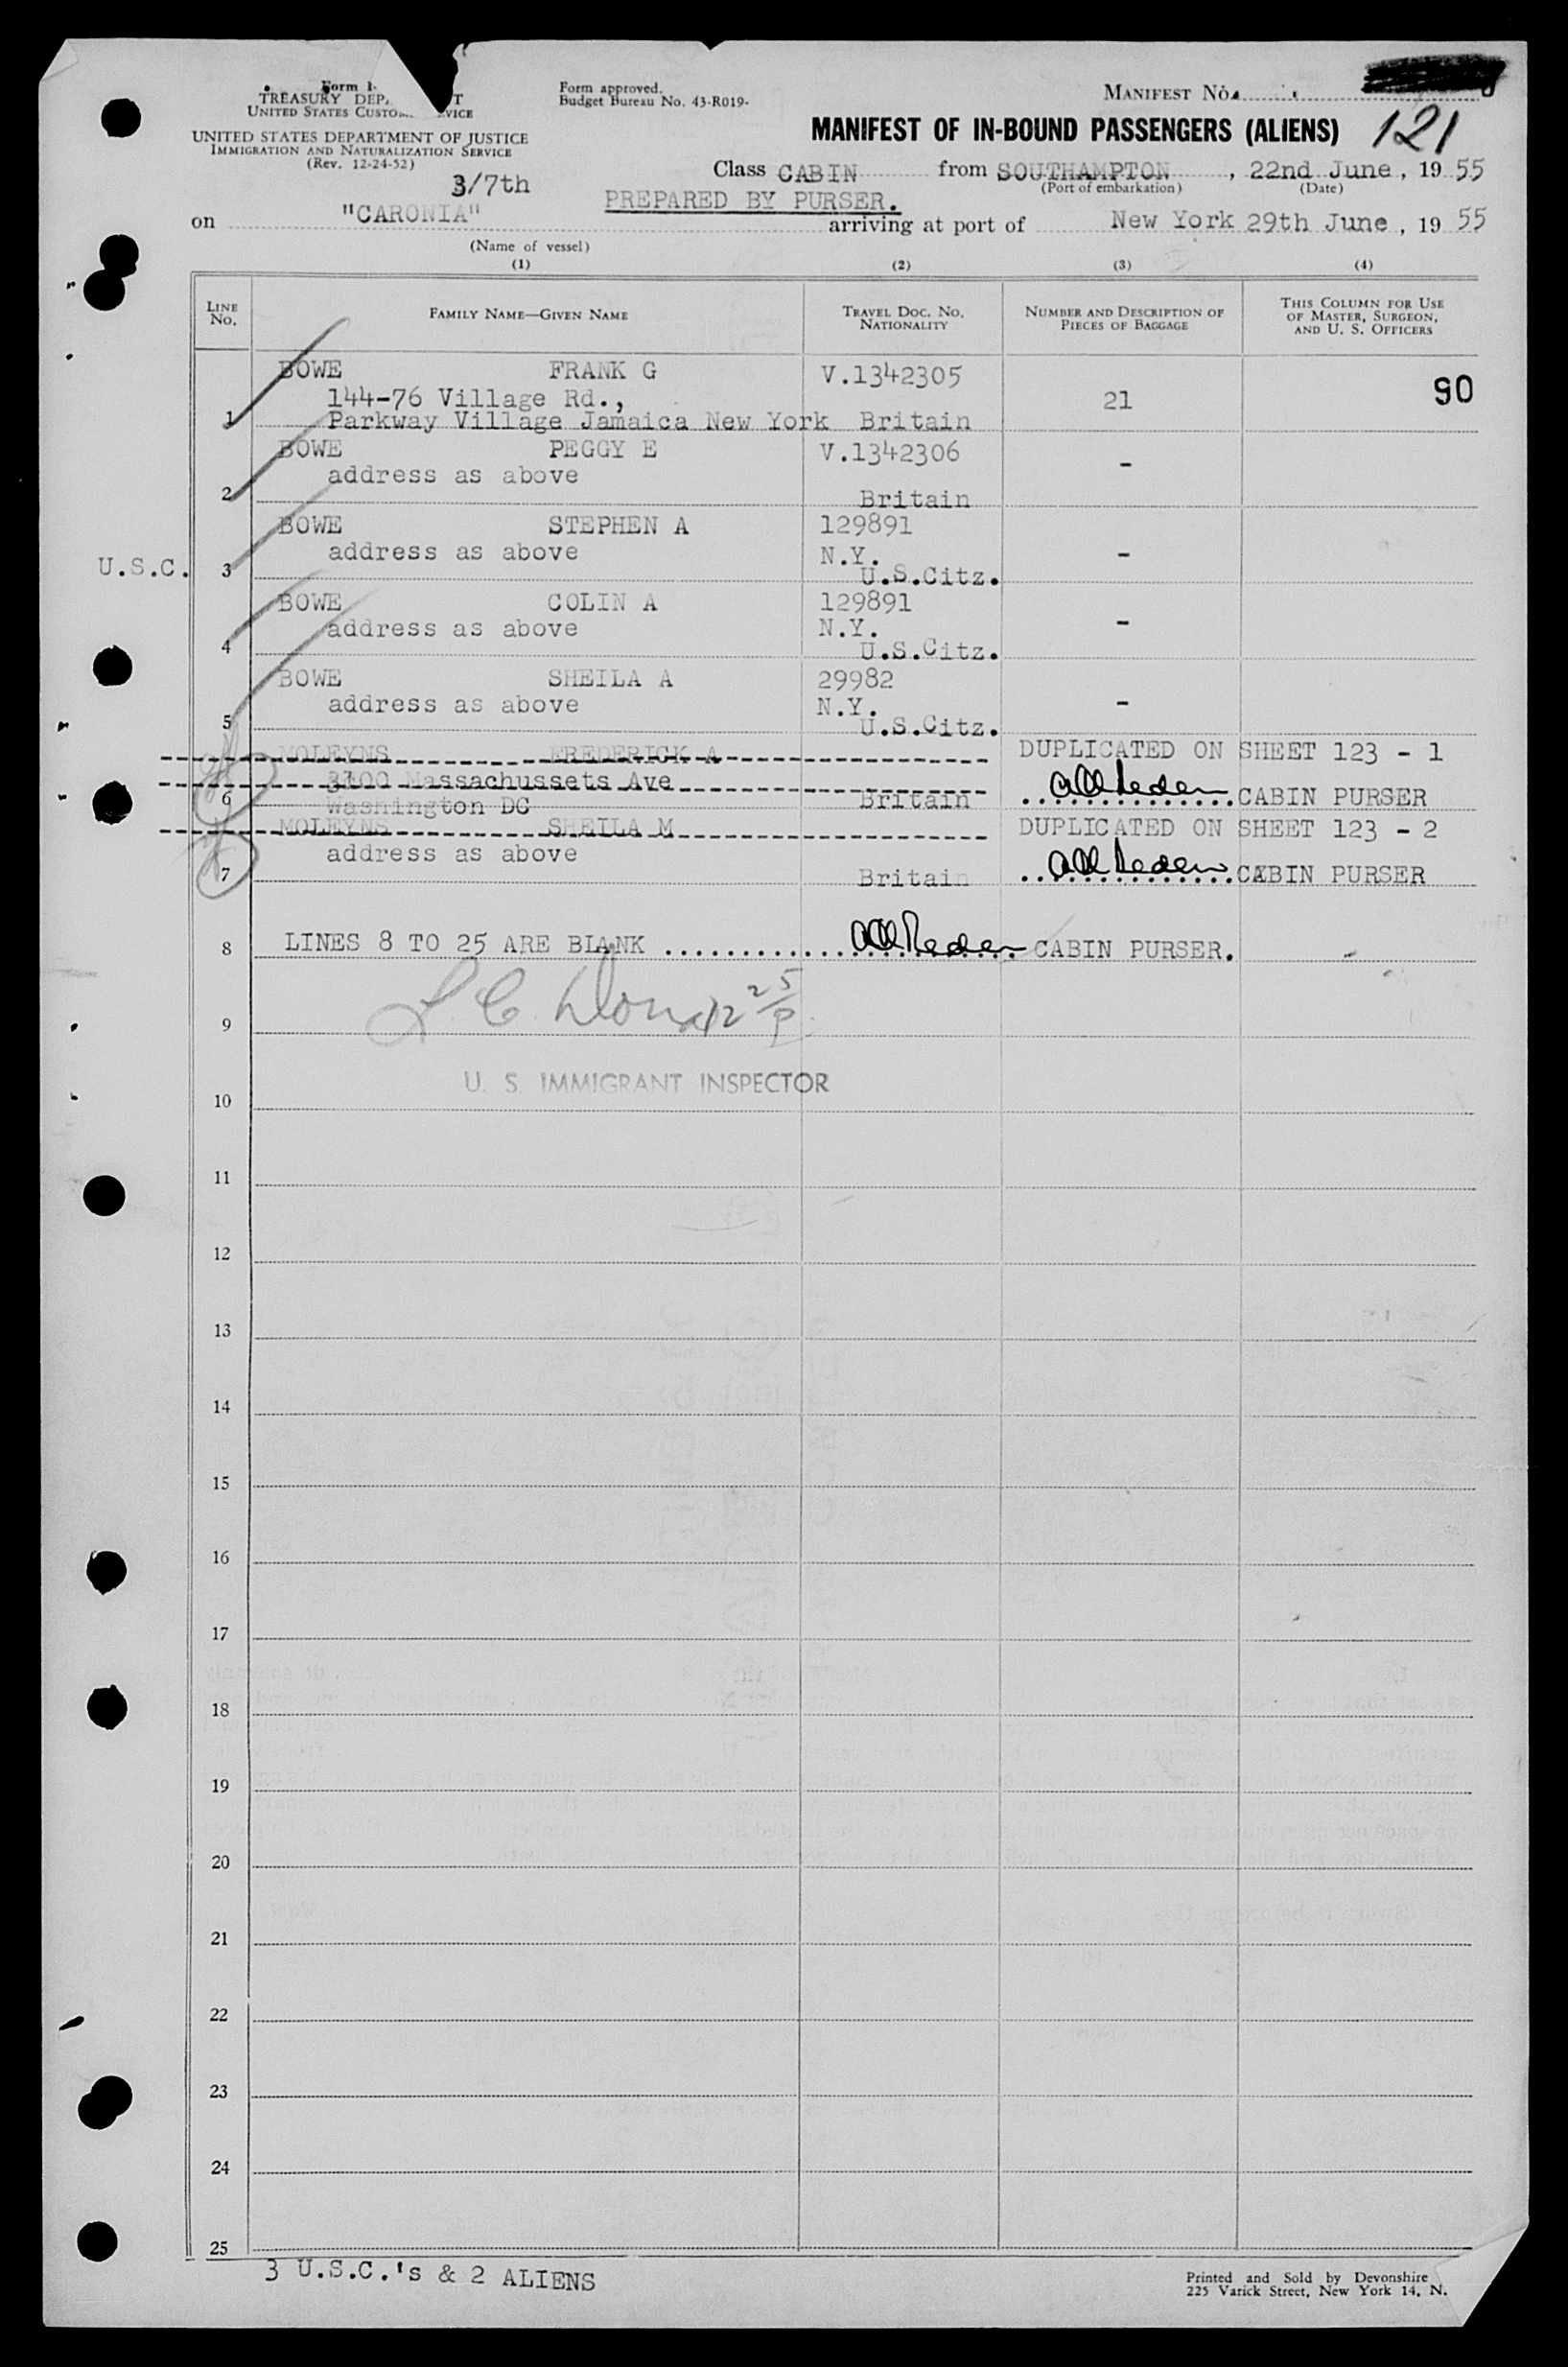 Form 1-
TREASURY DEP T
UNITED STATES CUSTO VICE
UNITED STATES DEPARTMENT OF JUSTICE
IMMIGRATION AND NATURALIZATION SERVICE
(Rev. 12-24-52)
Form approved.
Budget Bureau No. 43-R019-
MANIFEST NO.
121
MANIFEST OF IN-BOUND PASSENGERS (ALIENS)
3/7th
Class CABIN from SOUTHAMPTON, 22nd June, 19 55
(Port of embarkation) (Date)
PREPARED BY PURSER.
on "CARONIA" arriving at port of New York 29th June, 19 55
(Name of vessel)
(1) (2) (3) (4)
LINE NO. FAMILY NAME—GIVEN NAME TRAVEL DOC. NO. NATIONALITY NUMBER AND DESCRIPTION OF PIECES OF BAGGAGE THIS COLUMN FOR USE OF MASTER, SURGEON, AND U. S. OFFICERS
BOWE FRANK G V.1342305
144-76 Village Rd., 21 90
1 Parkway Village Jamaica New York Britain
BOWE PEGGY E V.1342306
address as above -
2 Britain
BOWE STEPHEN A 129891
address as above N.Y. -
U.S.C. 3 U.S.Citz.
BOWE COLIN A 129891
address as above N.Y. -
4 U.S.Citz.
BOWE SHEILA A 29982
address as above N.Y. -
5 U.S.Citz.
MOLEYNS FREDERICK A DUPLICATED ON SHEET 123 - 1
3100 Massachussets Ave
6 Washington DC Britain CABIN PURSER
MOLEYNS SHEILA M DUPLICATED ON SHEET 123 - 2
address as above
7 Britain CABIN PURSER
8 LINES 8 TO 25 ARE BLANK CABIN PURSER.
9
U. S. IMMIGRANT INSPECTOR
10
11
12
13
14
15
16
17
18
19
20
21
22
23
24
25
3 U.S.C.'s & 2 ALIENS
Printed and Sold by Devonshire
225 Varick Street, New York 14, N.